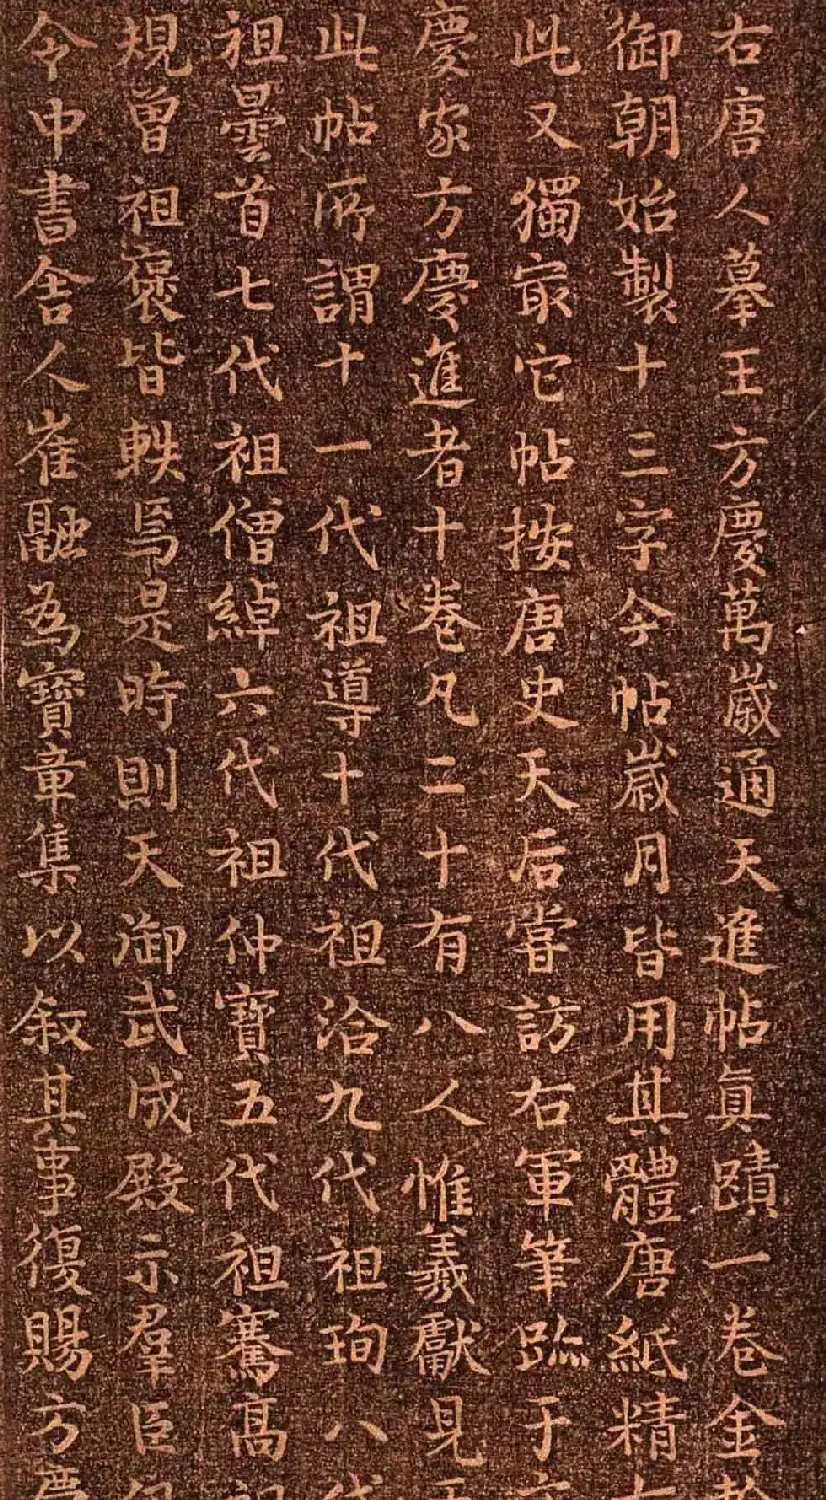 右唐人摹王方慶萬歲通天進帖眞蹟一卷金
御朝始製十三字今帖歲月皆用其體唐紙精
此又獨冣它帖按唐史天后嘗訪右軍筆跡于
慶家方慶進者十卷凡二十有八人惟羲獻見
此帖所謂十一代祖導十代祖洽九代祖珣八代
祖曇首七代祖僧綽六代祖仲寶五代祖騫高
規曾祖褒皆軼焉是時則天御武成殿示羣臣
令中書舍人崔融為寶章集以叙其事復賜方慶